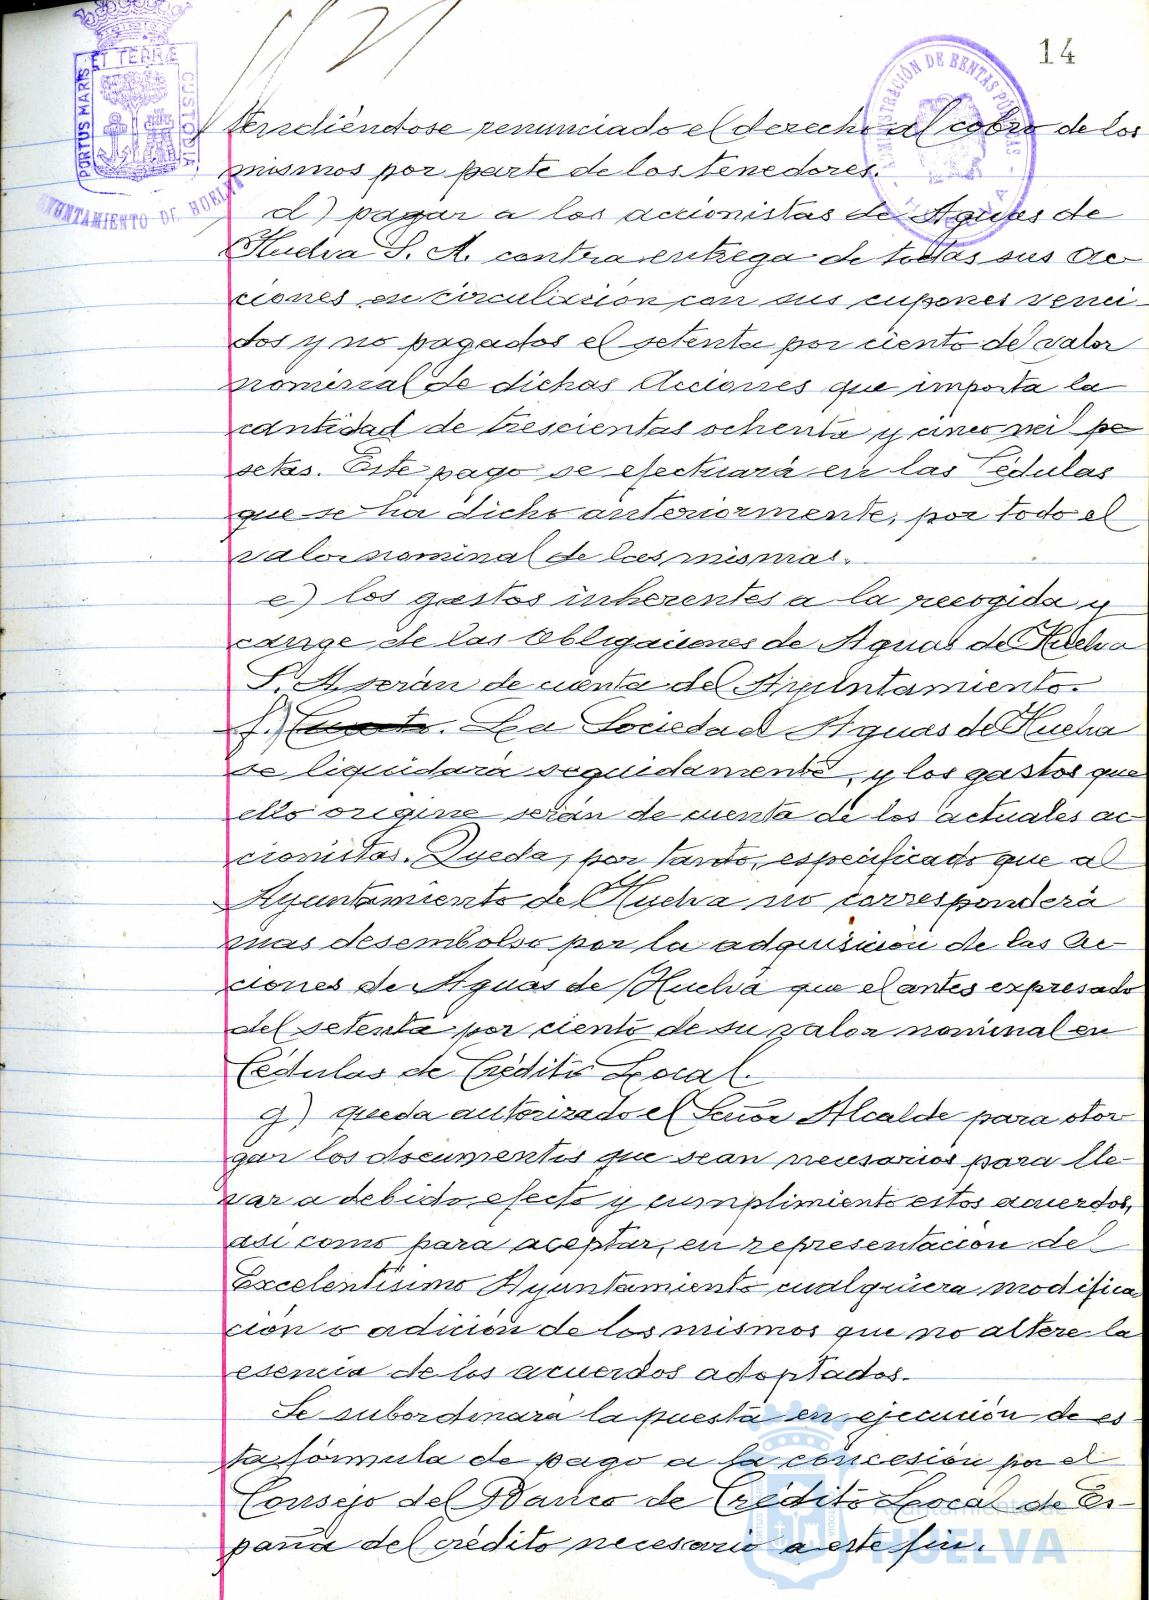 14
PORTUS MARIS ET TERRÆ CUSTODIA
AYUNTAMIENTO DE HUELVA
ADMINISTRACIÓN DE RENTAS PÚBLICAS
HUELVA
tendiéndose renunciado el derecho al cobro de los
mismos por parte de los tenedores.
d) pagar a los accionistas de Aguas de
Huelva S. A. contra entrega de todas sus Ac-
ciones en circulación con sus cupones venci-
dos y no pagados el setenta por ciento del valor
nominal de dichas Acciones que importa la
cantidad de trescientas ochenta y cinco mil pe
setas. Este pago se efectuará en las Cédulas
que se ha dicho anteriormente, por todo el
valor nominal de las mismas.
e) los gastos inherentes a la recogida y
cange de las Obligaciones de Aguas de Huelva
S. A. serán de cuenta del Ayuntamiento.
f.) Cuarto. La Sociedad Aguas de Huelva
se liquidará seguidamente, y los gastos que
ello origine serán de cuenta de los actuales ac-
cionistas. Queda, por tanto, especificado que al
Ayuntamiento de Huelva no corresponderá
mas desembolso por la adquisición de las Ac-
ciones de Aguas de Huelva que el antes expresado
del setenta por ciento de su valor nominal en
Cédulas de Crédito Local.
g) queda autorizado el Señor Alcalde para otor
gar los documentos que sean necesarios para lle-
var a debido efecto y cumplimiento estos acuerdos,
así como para aceptar, en representación del
Excelentísimo Ayuntamiento cualquiera modifica
ción o adición de los mismos que no altere la
esencia de los acuerdos adoptados.
Se subordinará la puesta en ejecución de es-
ta fórmula de pago a la concesión por el
Consejo del Banco de Crédito Local de Es-
paña del crédito necesario a este fin.
Ayuntamiento de
HUELVA